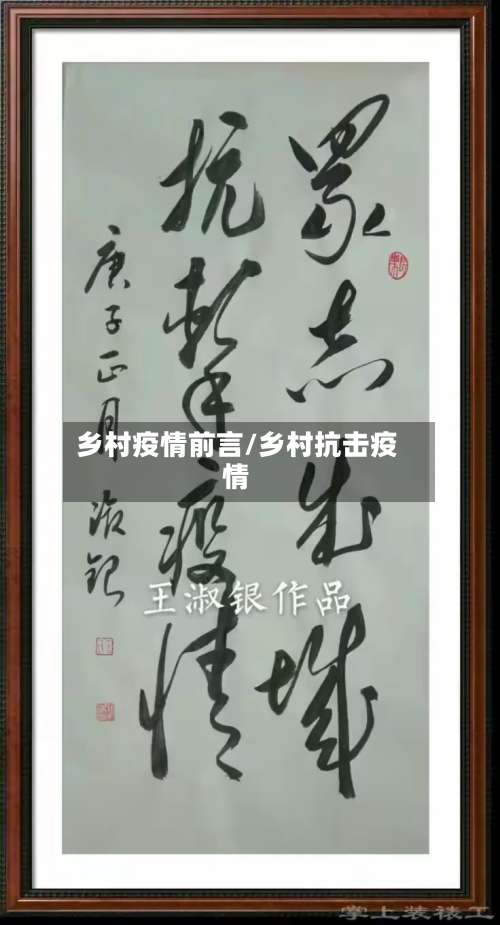 眾志成城
抗擊疫情
庚子正月淑银
乡村疫情前言/乡村抗击疫
情
王淑银作品
掌上装裱工